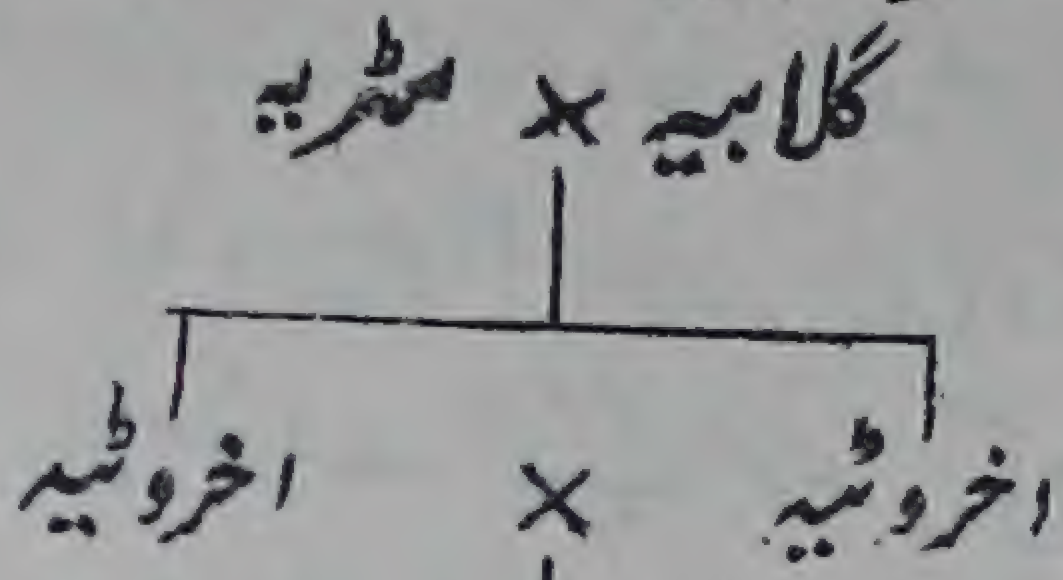 گلابیہ × مٹریہ
اخروٹیہ × اخروٹیہ